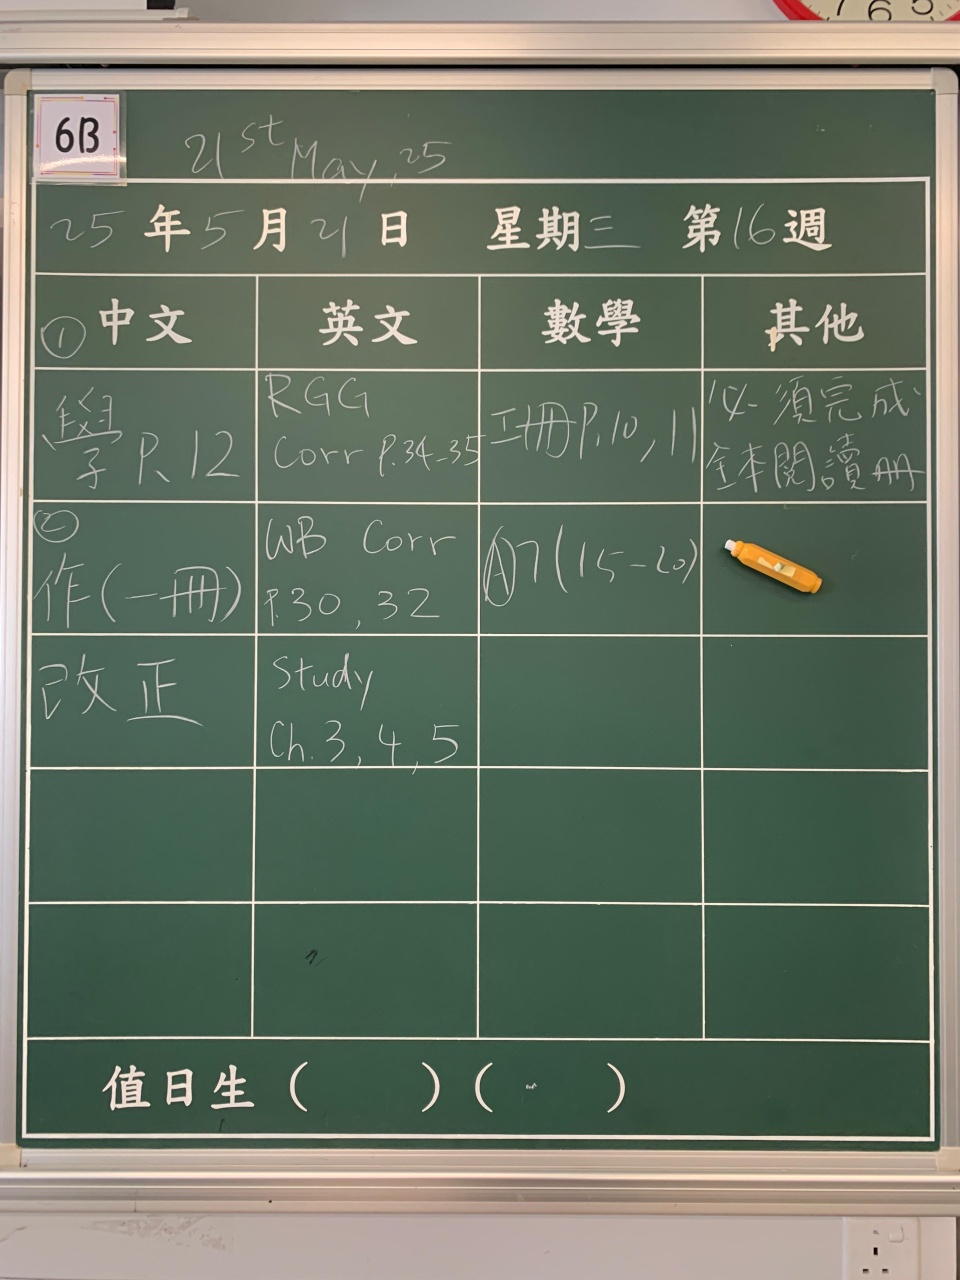 6B
21st May, 25
25年5月21日 星期三 第16週
① 中文 英文 數學 其他
學 P. 12
RGG
Corr P.34-35
工冊P.10, 11
必須完成
全本閱讀冊
②
作(一冊)
WB Corr
P.30, 32
Ⓐ7(15-20)
改正
Study
Ch.3, 4, 5
值日生 ( ) ( )
7 6 5